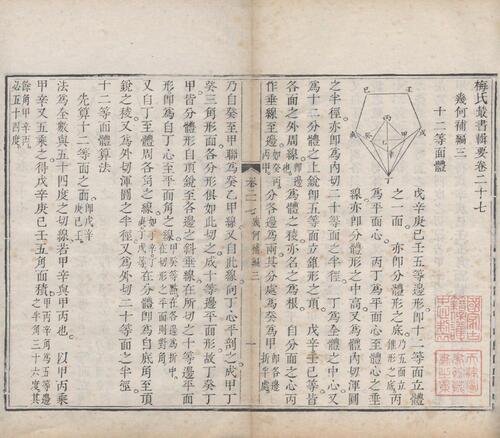 梅氏叢書輯要卷二十七
幾何補編三
十二等面體
戊辛庚己壬五等邊形即十二等面體
之一面亦即分體形之底乃五面立丙錐形之底
為平面心丙丁為平面心至體心之垂
線亦即分體形之中高又為體內切渾圓
之半徑亦即為內切二十等面之半徑丁為全體之中心又
為十二分體之上銳即五等面立錐形之頂戊辛辛己等皆
各面之外周線即邊為體之稜亦名之為根自分體之心又
作垂線至邊如丙甲分各邊為兩其分處為癸為甲折半處
卷二十七 幾何補編三
一
乃自癸至甲聯為癸乙甲線又自此線向丁心平剖之成甲丁
癸三角形面各分形俱如此切之成十等邊平面形故丁癸丁
甲皆分體形自頂銳至各邊之斜垂線在所切之十等邊平面
形即為自丁心至平面角之線
又自丁至體周各角之線如丁戊丁辛等在分體即為自底角至頂
銳之稜又為外切渾圓之半徑又為外切二十等面之半徑
十二等面體算法
先算十二等面之面即戊辛庚己壬
法為全數與五十四度之切線若甲辛與甲丙也以甲丙乘
甲辛又五乘之得戊辛庚己壬五角面積
餘角甲辛丙必五十四度